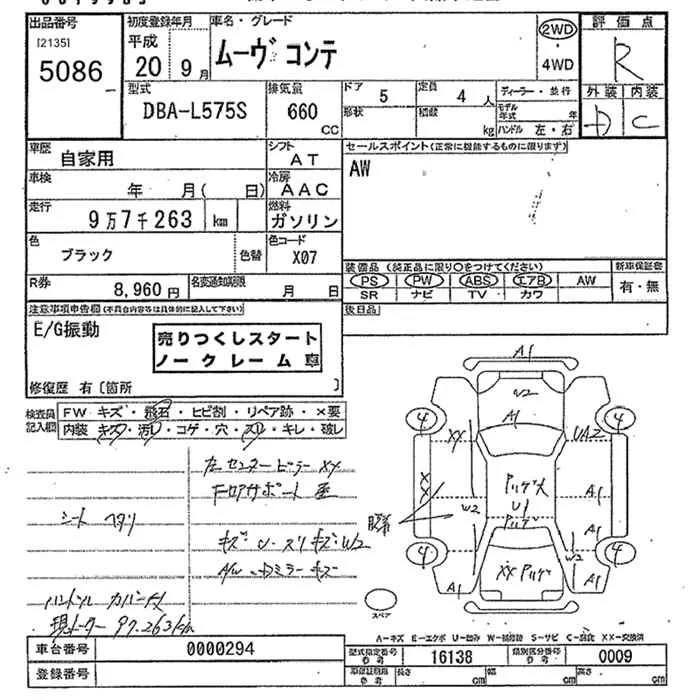 出品番号 初度登録年月 車名・グレード 評価点
[2135] 平成 ムーヴ コンテ 2WD R
5086 20 9月 4WD
外装 内装
型式 排気量 ドア 定員 ディーラー・並行
DBA-L575S 660 CC 5 4人 D C
形状 積数 kg モデル年式 年 ハンドル 左・右
車歴 自家用 シフト AT セールスポイント(正常に機能するものに限ります)
車検 年 月( 日) 冷房 AAC AW
走行 9万7千263 km 燃料 ガソリン
色 ブラック 色替 色コード X07
装備品 (純正品に限り○をつけてください) 新車保証書
R券 8,960円 名変通知期限 月 日 PS PW ABS エアB AW 有・無
SR ナビ TV カワ
注意事項申告欄(不具合内容等は具体的に記入して下さい) 後日品
E/G振動
売りつくしスタート
ノークレーム車
修復歴 有〔箇所 〕
検査員記入欄 FW キズ・飛石・ヒビ割・リペア跡・×要
内装 キズ・汚レ・コゲ・穴・スレ・キレ・破レ
A1
W2
A1
4 4
XX UA2
左センターピラーXX
XX
A1
U1
シート ヘタリ
W2
A1
キズ・U・スリキズ・W2
W2
4 4
A1 XX A1
スペア
ハンドル カバー付
現メーター 97.263km
A-キズ E-エクボ U-凹み W-補修跡 S-サビ C-腐蝕 XX-交換済
車台番号 0000294 型式指定番号 参考 16138 類別区分番号 参考 0009
登録番号 参考 長さ cm 幅 cm 高さ cm